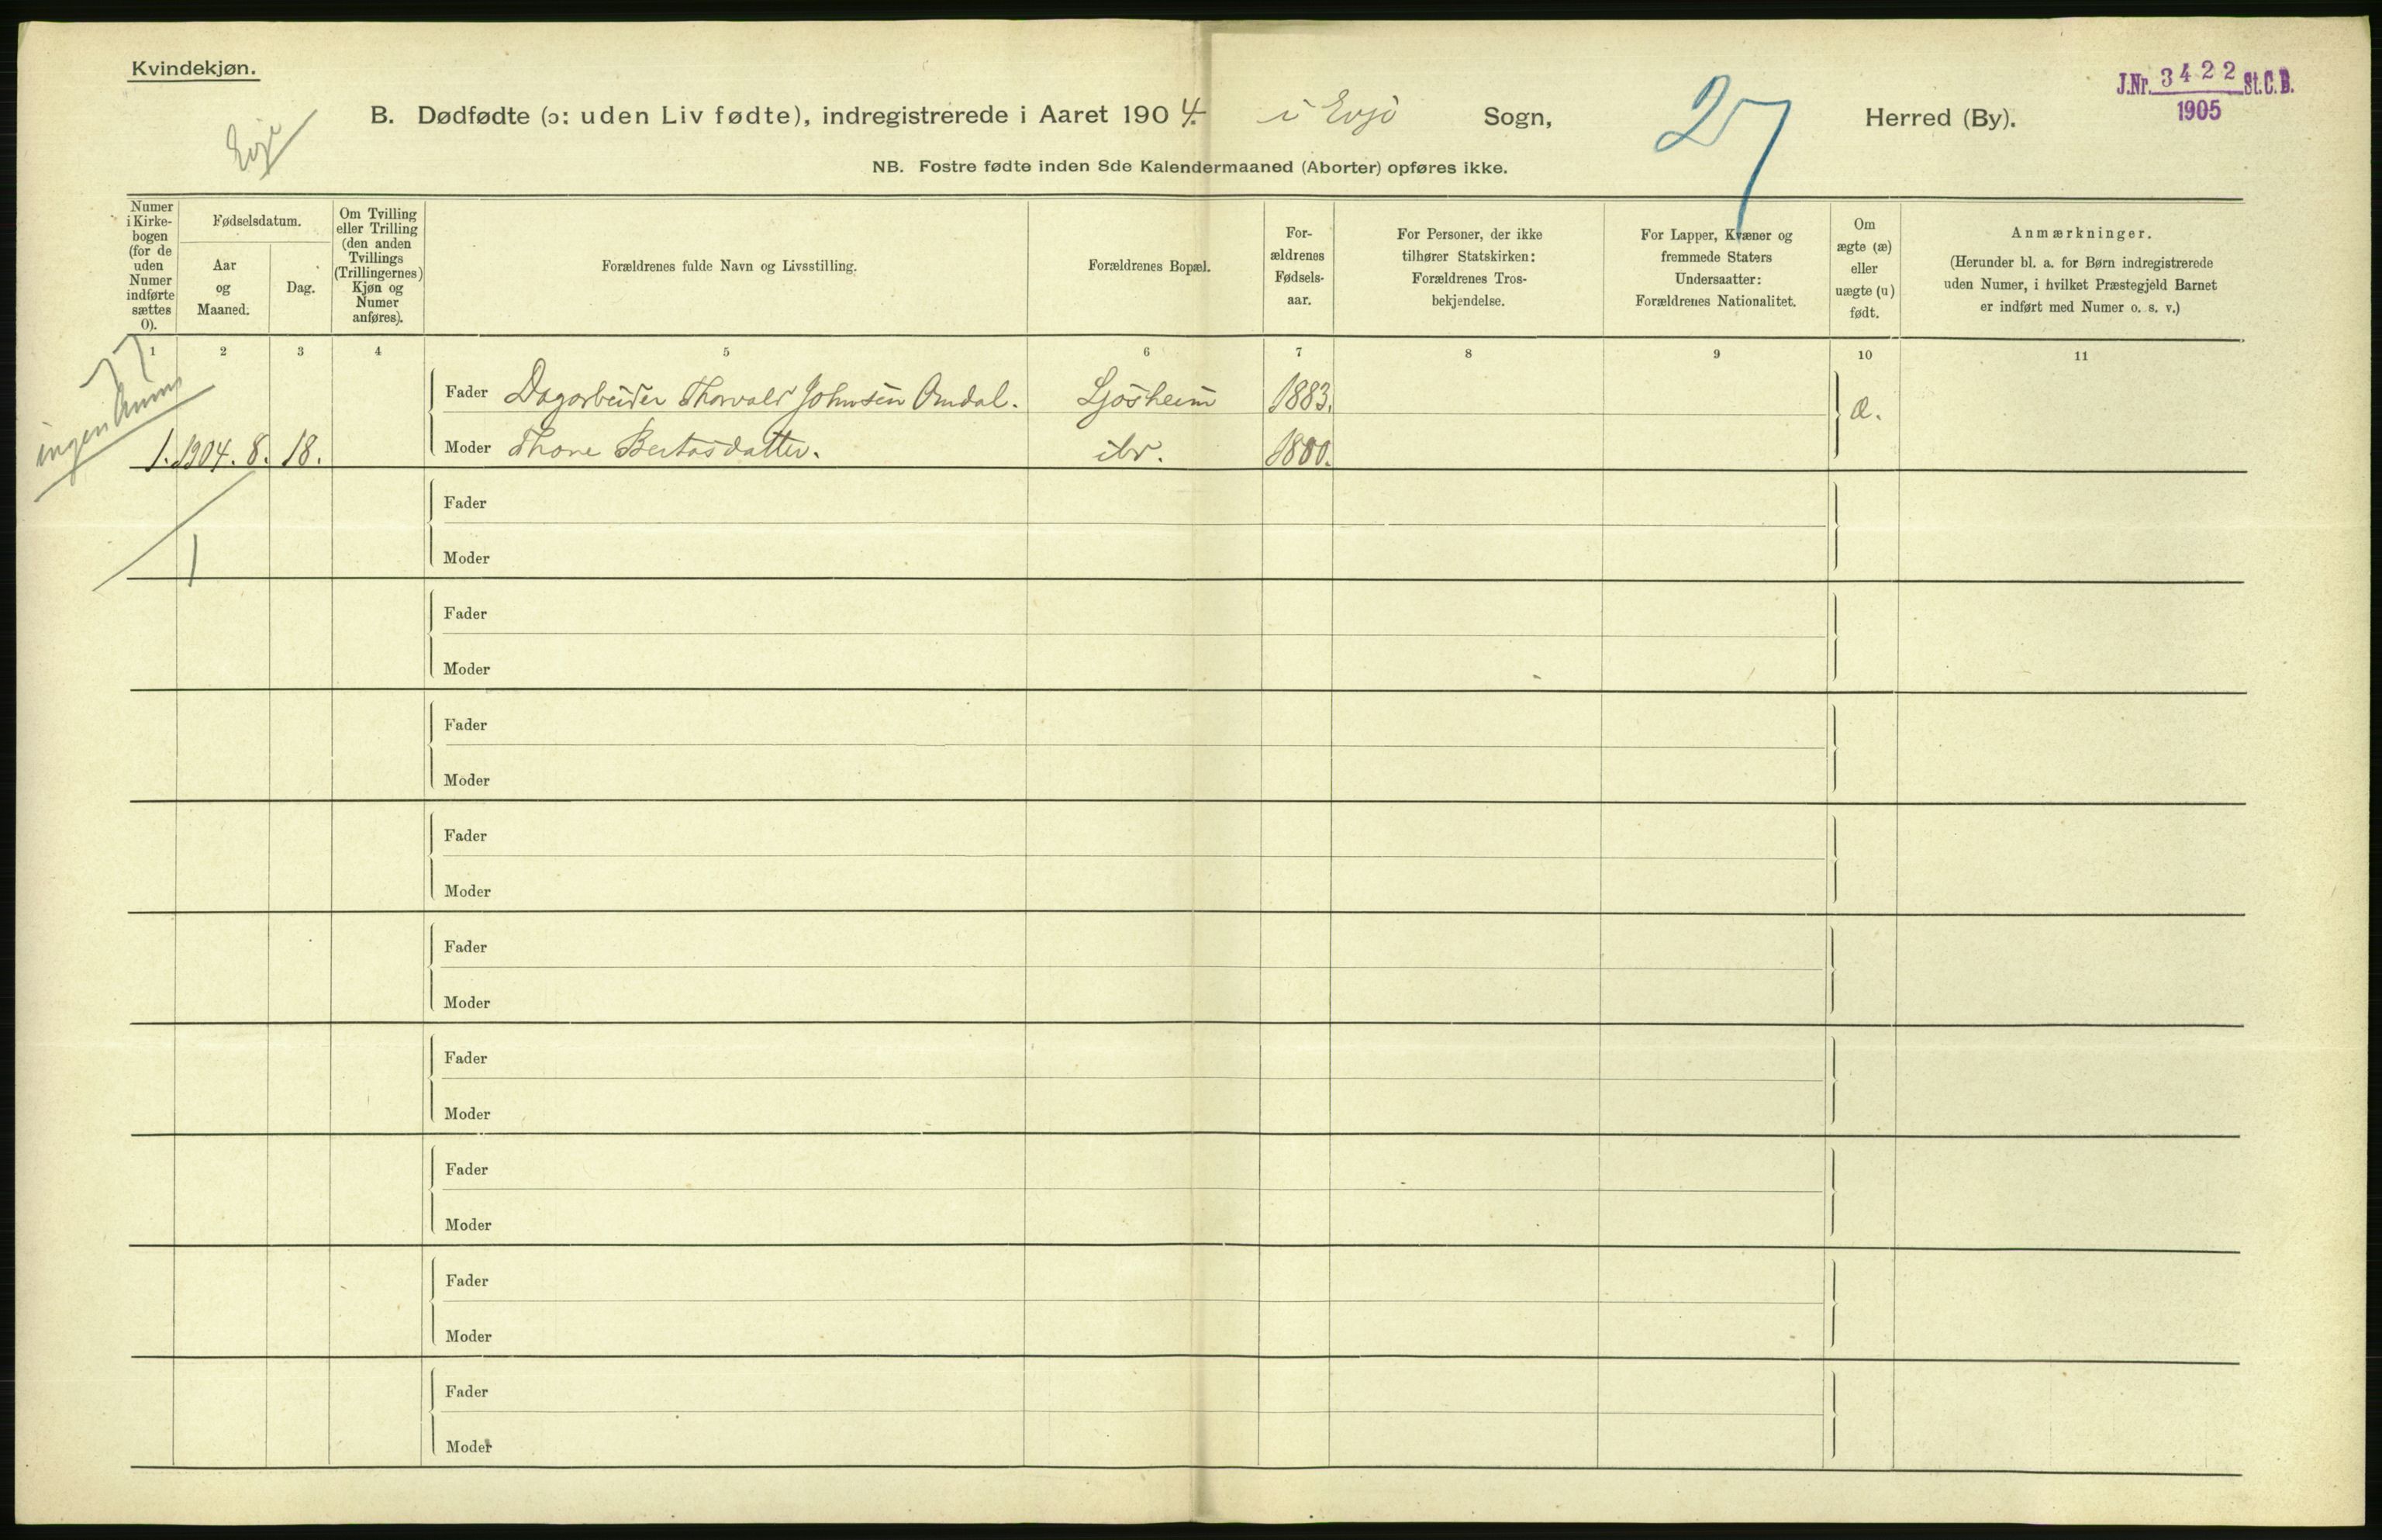 Kvindekjøn.
J.Nr. 3422 St.C.B.
1905
Evje
B. Dødfødte (ɔ: uden Liv fødte), indregistrerede i Aaret 1904. i Evje Sogn, Herred (By).
27
NB. Fostre fødte inden 8de Kalendermaaned (Aborter) opføres ikke.
Numer i Kirke-bogen (for de uden Numer indførte sættes 0).
Fødselsdatum.
Aar og Maaned.
Dag.
Om Tvilling eller Trilling (den anden Tvillings (Trillingernes) Kjøn og Numer anføres).
Forældrenes fulde Navn og Livsstilling.
Forældrenes Bopæl.
For-ældrenes Fødsels-aar.
For Personer, der ikke tilhører Statskirken: Forældrenes Tros-bekjendelse.
For Lapper, Kvæner og fremmede Staters Undersaatter: Forældrenes Nationalitet.
Om ægte (æ) eller uægte (u) født.
Anmærkninger.
(Herunder bl. a. for Børn indregistrerede uden Numer, i hvilket Præstegjeld Barnet er indført med Numer o. s. v.)
1 2 3 4 5 6 7 8 9 10 11
ingen Anm
Fader Dagarbeider Thorvald Johnsen Omdal. Ljosheim 1883. æ.
1. 1904. 8. 18. Moder Thone Bertasdatter. ibr. 1880.
Fader
1
Moder
Fader
Moder
Fader
Moder
Fader
Moder
Fader
Moder
Fader
Moder
Fader
Moder
Fader
Moder
Fader
Moder